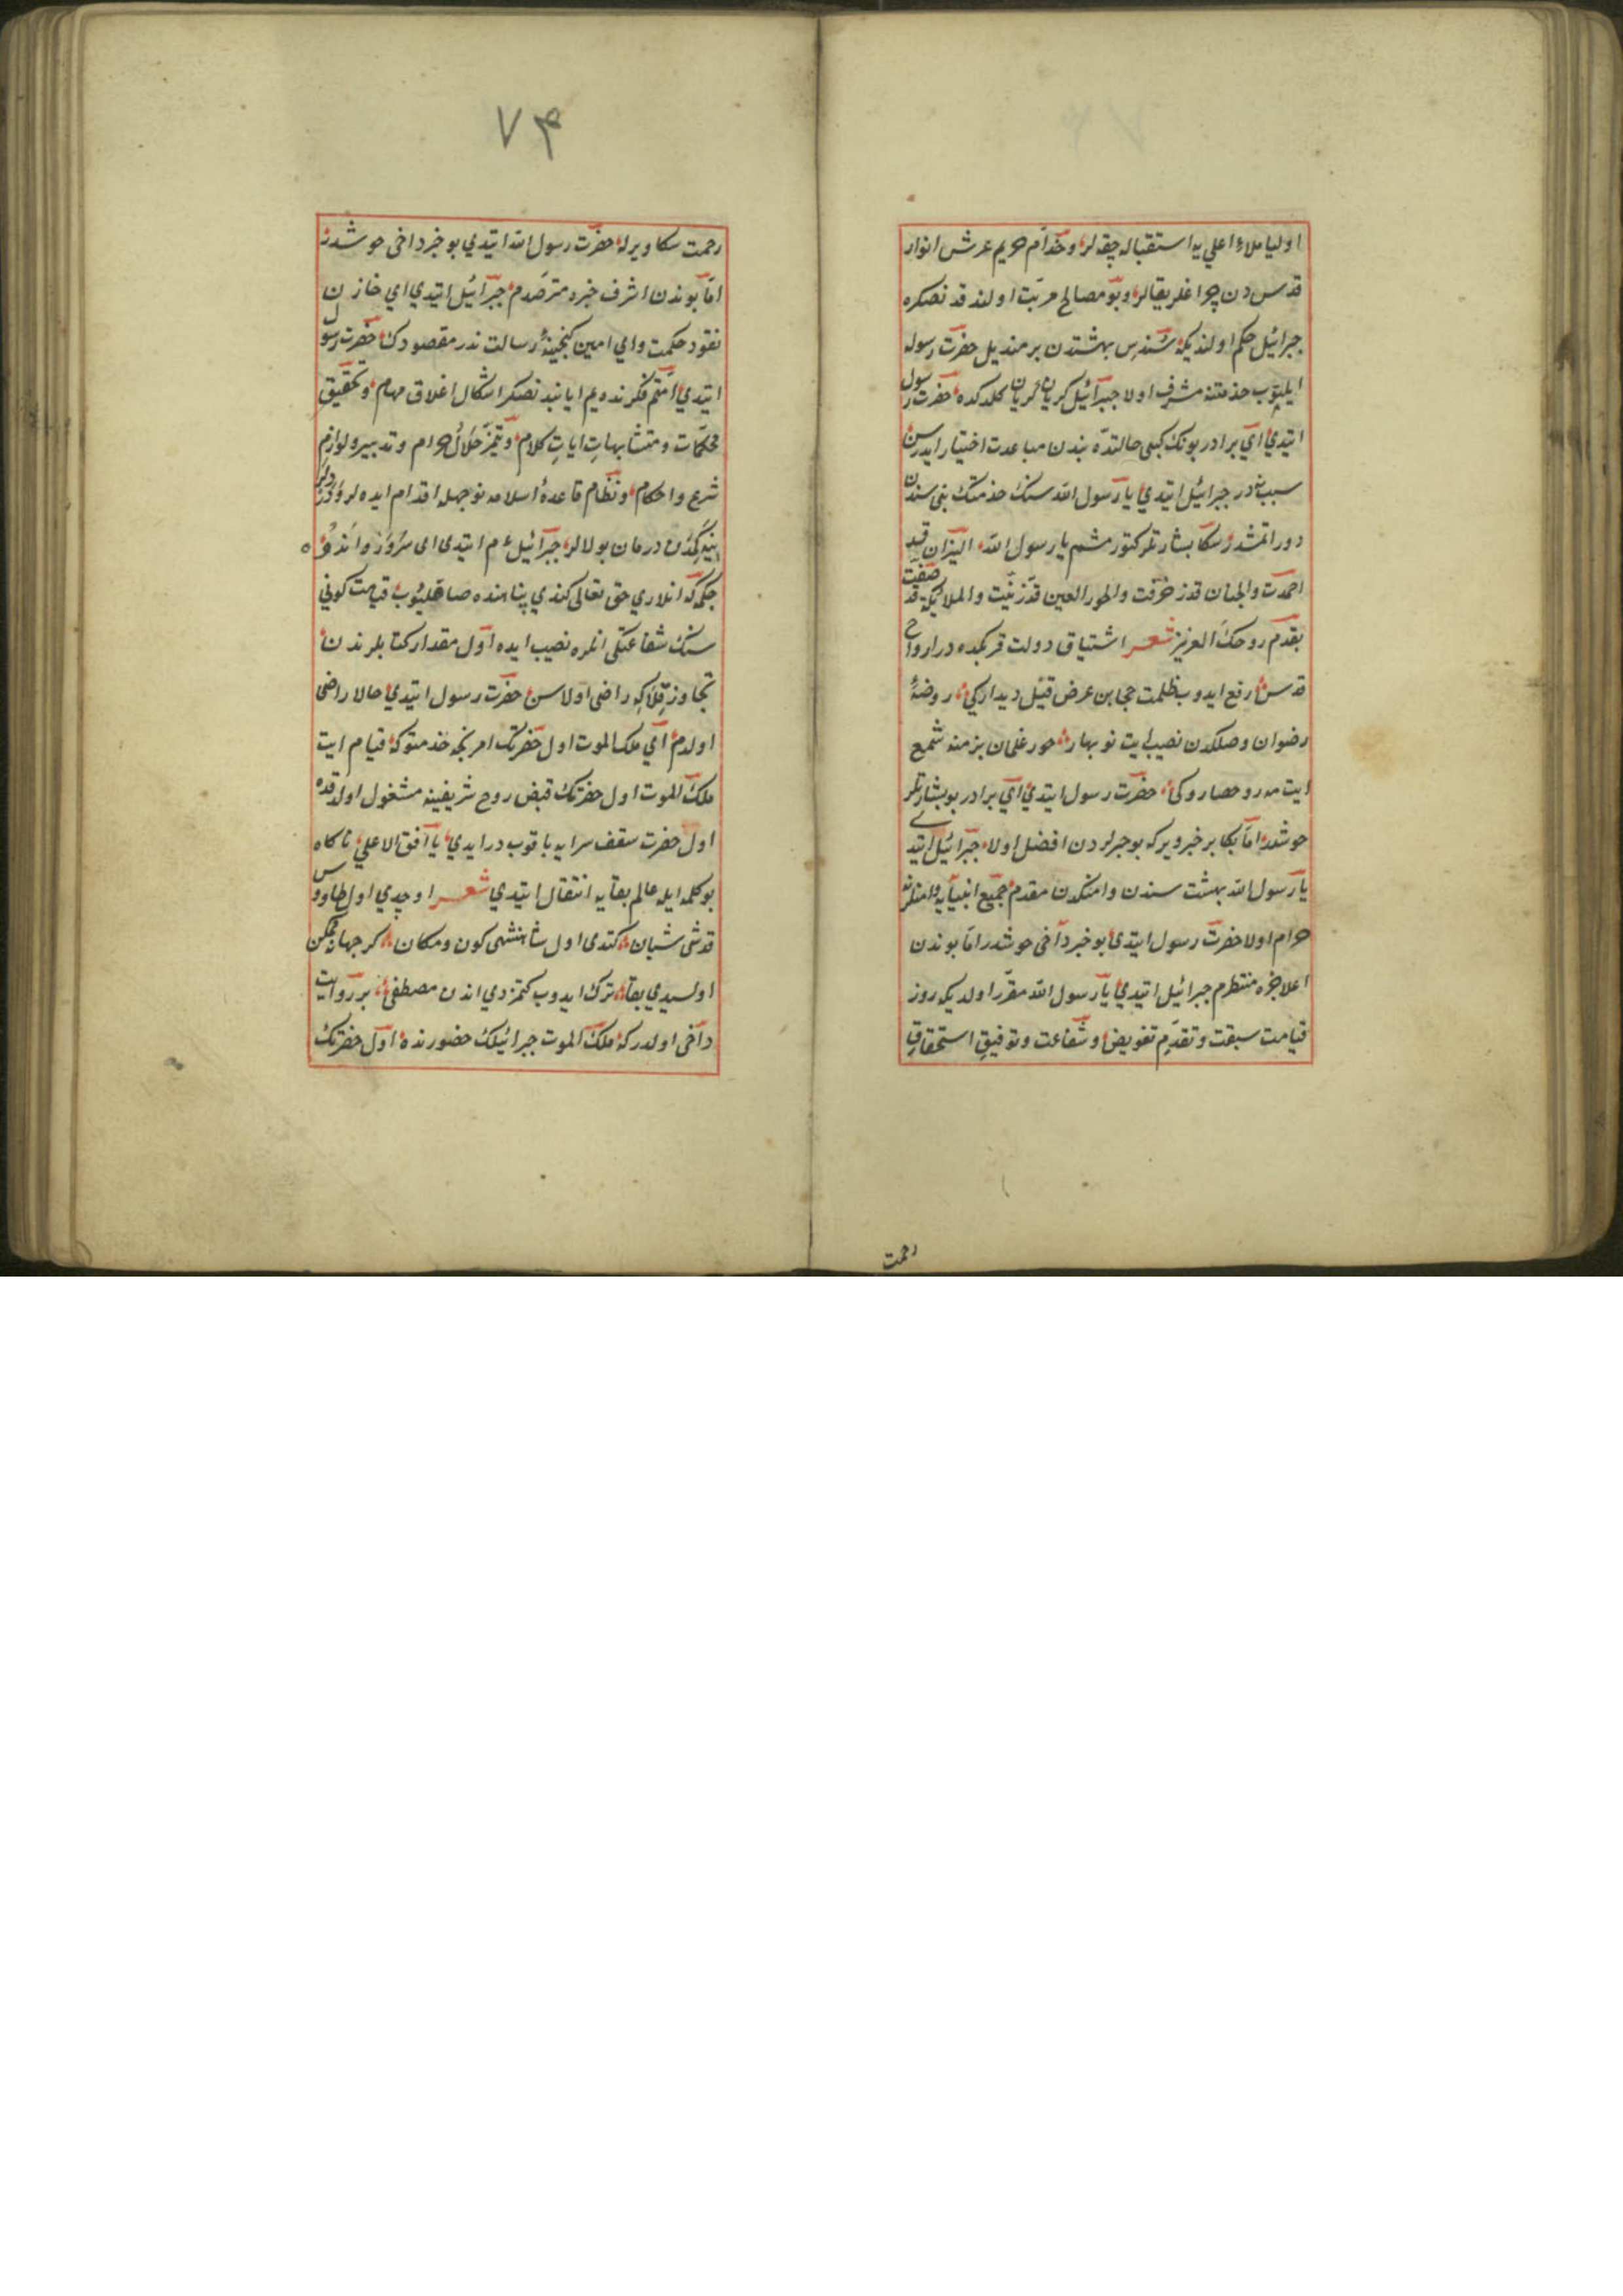 اوليا ملاء اعلي يه استقباله چقه لر وخدام حريم عرش انوار
قدس دن چراغلر يقالر وبو مصالح مرتب اولندقدنصكره
جبرائيل حكم اولنديكه سندس بهشتدن بر منديل حضرت رسوله
ايليتوب خدمتنه مشرف اولا جبرائيل كريان كريان كلدكده حضرت رسول
ايتدي اي برادر بونك كبي حالتده بندن مباعدت اختيار ايدرسن
سبب ندر جبرائيل ايتدي يا رسول الله سنك خدمتك بني سندن
دور اتمشدر سكا بشارتلر كتورمشم يا رسول الله النيران قد
اخمدت والجنان قد زخرفت والحور العين قد زينت والملائكة قد صفت
بقدم روحك العزيز شعر اشتياق دولت قربكده در ارواح
قدس رفع ايدوب ظلمت حجابن عرض قيل ديداركي روضهٔ
رضوان وصلكدن نصيب ايت نوبهار حور غلمان بزمنه شمع
ايت مه رخساروكي حضرت رسول ايتدي اي برادر بو بشارتلر
خوشدر اما بكا بر خبر ويركه بو خبرلردن افضل اولا جبرائيل ايتدي
يا رسول الله بهشت سندن وامتكدن مقدم جميع انبيايه وامتلرنه
حرام اولا حضرت رسول ايتدي بو خبر داخى خوشدر اما بوندن
اعلا خبره منتظرم جبرائيل ايتدي يا رسول الله مقرر اولديكه روز
قيامت سبقت وتقدم تفويض وشفاعت وتوفيق استحقاق
رحمت
٧٤
رحمت سكا ويرله حضرت رسول الله ايتدي بو خبر داخى خوشدر
اما بوندن اشرف خبره مترصدم جبرائيل ايتدي اي خازن
نقود حكمت واي امين كنجينهٔ رسالت ندر مقصودك حضرت رسول
ايتدي امتم فكرنده يم ايا بندنصكره اشكال اغلاق مهام وتحقيق
محكمات ومتشابهات ايات كلام وتميز حلال حرام وتدبير ولوازم
شرع واحكام ونظام قاعدهٔ اسلامه نوجهله اقدام ايده لر
نيه كمدن درمان بولالر جبرائيل ءم ايتدى اى
حكم كه انلاري حق تعالى كندي پناهنده صاقليوب قيامت كوني
سنك شفاعتكى انلره نصيب ايده اول مقدار كناهلرندن
تجاوز قلا كه راضى اولاسن حضرت رسول ايتدي حالا راضى
اولدم اي ملك الموت اول حضرتك امر نجه خدمتوكه قيام ايت
ملك الموت اول حضرتك قبض روح شريفينه مشغول اولدقده
اول حضرت سقف سرايه باقوب درايدي يا افق الاعلى ناكاه
بو كلمه ايله عالم بقايه انتقال ايتدي شعر اوچدي اول طاووس
قدشى شبان كتدى اول شاهنشهى كون ومكان كر جهان ممكن
اولسيدي بقا ترك ايدوب كتمزدي اندن مصطفى بر روايت
داخى اولدركه ملك الموت جبرائيلك حضورنده اول حضرتك